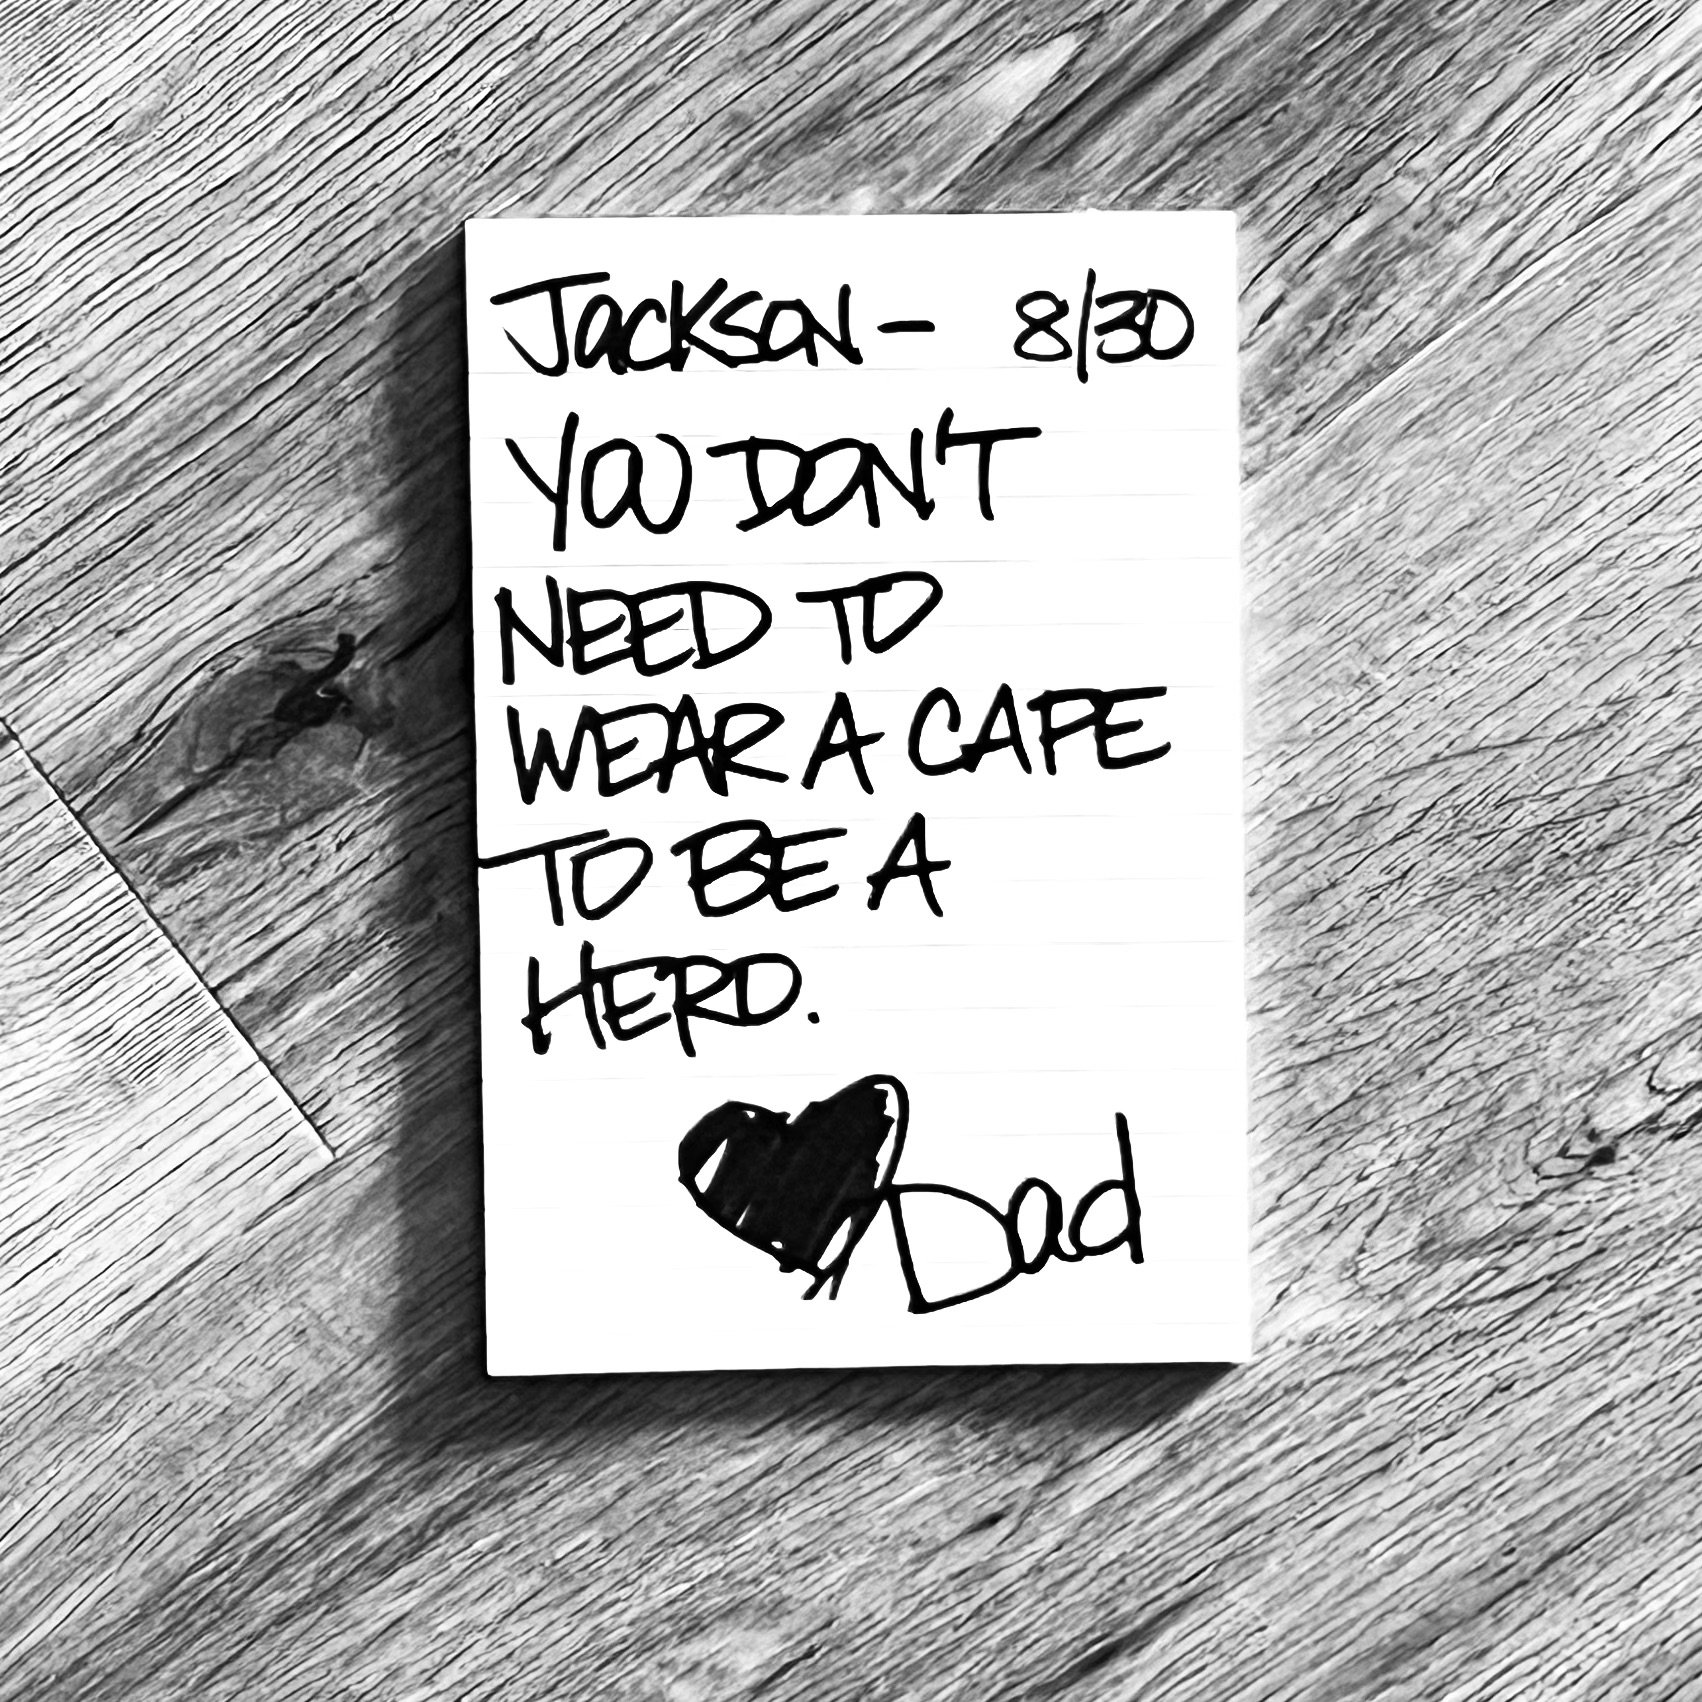 Jackson- 8/30
YOU DON'T
NEED TO
WEAR A CAPE
TO BE A
HERO.
Dad